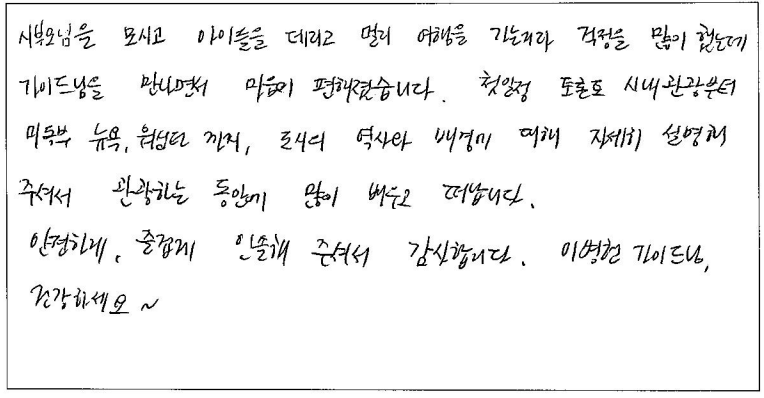 시부모님을 모시고 아이들을 데리고 멀리 여행을 가는거라 걱정을 많이 했는데
가이드님을 만나면서 마음이 편해졌습니다. 첫일정 토론토 시내관광부터
미동부 뉴욕, 워싱턴 까지, 도시의 역사와 배경에 대해 자세히 설명해
주셔서 관광하는 동안에 많이 배우고 떠납니다.
안전하게, 즐겁게 인솔해 주셔서 감사합니다. 이병헌 가이드님,
건강하세요~